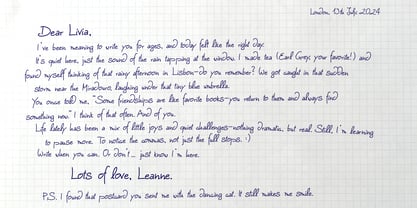 London, 13th July, 2024
Dear Livia,
I've been meaning to write you for ages, and today felt like the right day.
It's quiet here, just the sound of the rain tapping at the window. I made tea (Earl Grey, your favorite!) and
found myself thinking of that rainy afternoon in Lisbon–do you remember? We got caught in that sudden
storm near the Miradouro, laughing under that tiny blue umbrella.
You once told me, "Some friendships are like favorite books–you return to them and always find
something new." I think of that often. And of you.
Life lately has been a mix of little joys and quiet challenges–nothing dramatic, but real. Still, I'm learning
to pause more. To notice the commas, not just the full stops. :)
Write when you can. Or don't... just know I'm here.
Lots of love, Leanne.
P.S. I found that postcard you sent me with the dancing cat. It still makes me smile.